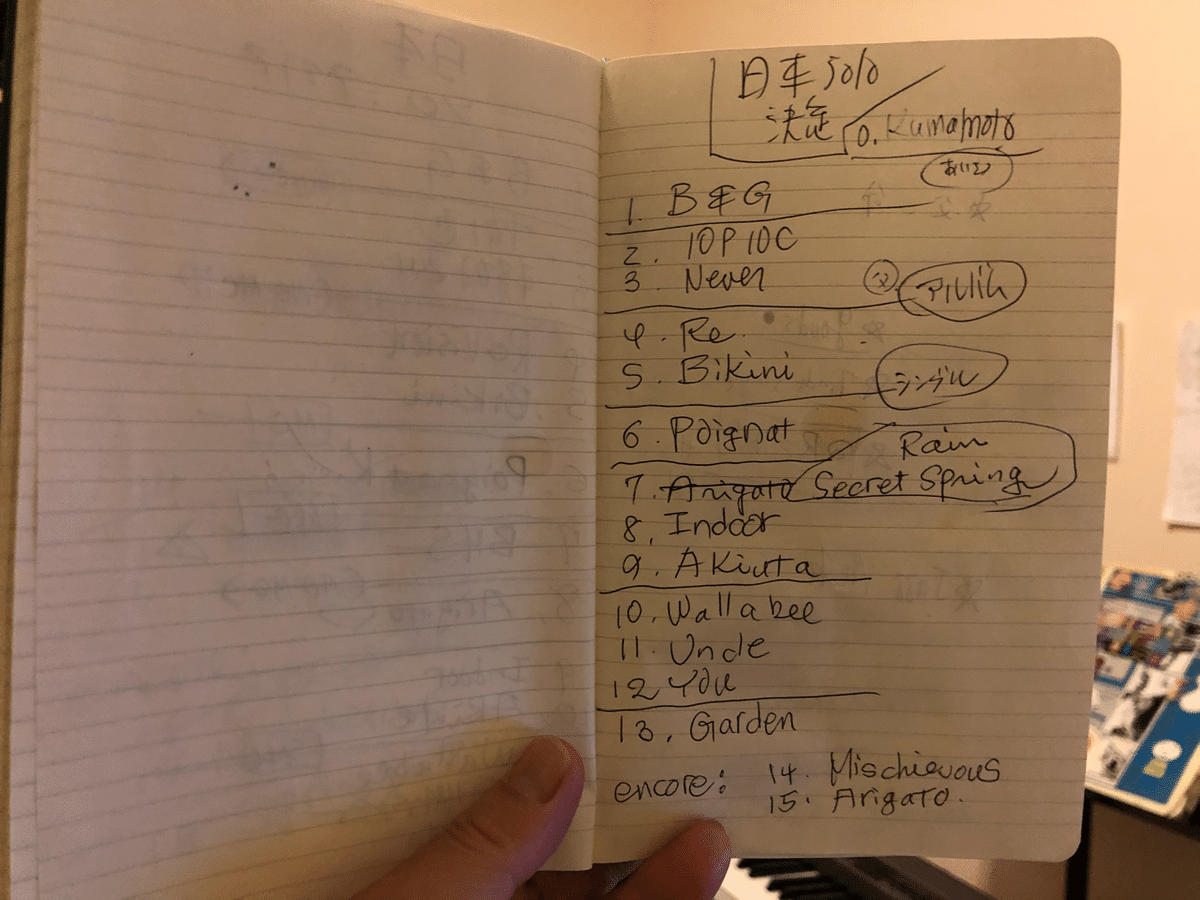 日本 solo
決定
0. Kumamoto
あいさつ
1. B & G
2. 10P10C
3. Never
4. Re.
5. Bikini
シングル
6. Poignat
Rain
7. Arigato Secret Spring
8. Indoor
9. Akiuta
10. Wallabee
11. Uncle
12 You
13. Garden
encore: 14. Mischievous
15. Arigato.